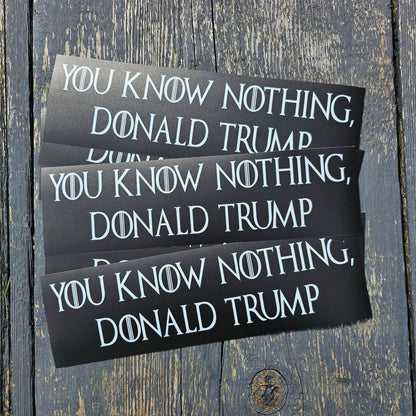 YOU KNOW NOTHING,
DONALD TRUMP
DONA
YOU KNOW NOTHING,
DONALD TRUMP
YOU KNOW NOTHING,
DONALD TRUMP